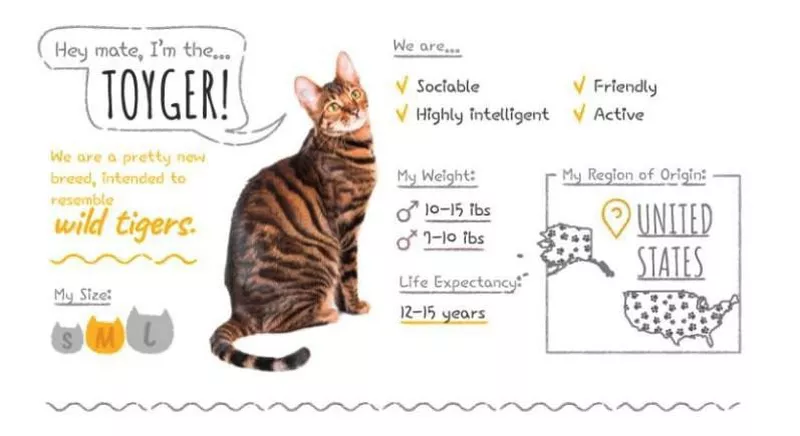 Hey mate, I'm the...
TOYGER!
We are a pretty new
breed, intended to
resemble
wild tigers.
My Size:
S M L
We are...
Sociable
Highly intelligent
Friendly
Active
My Weight:
10-15 lbs
7-10 lbs
Life Expectancy:
12-15 years
My Region of Origin:
UNITED
STATES